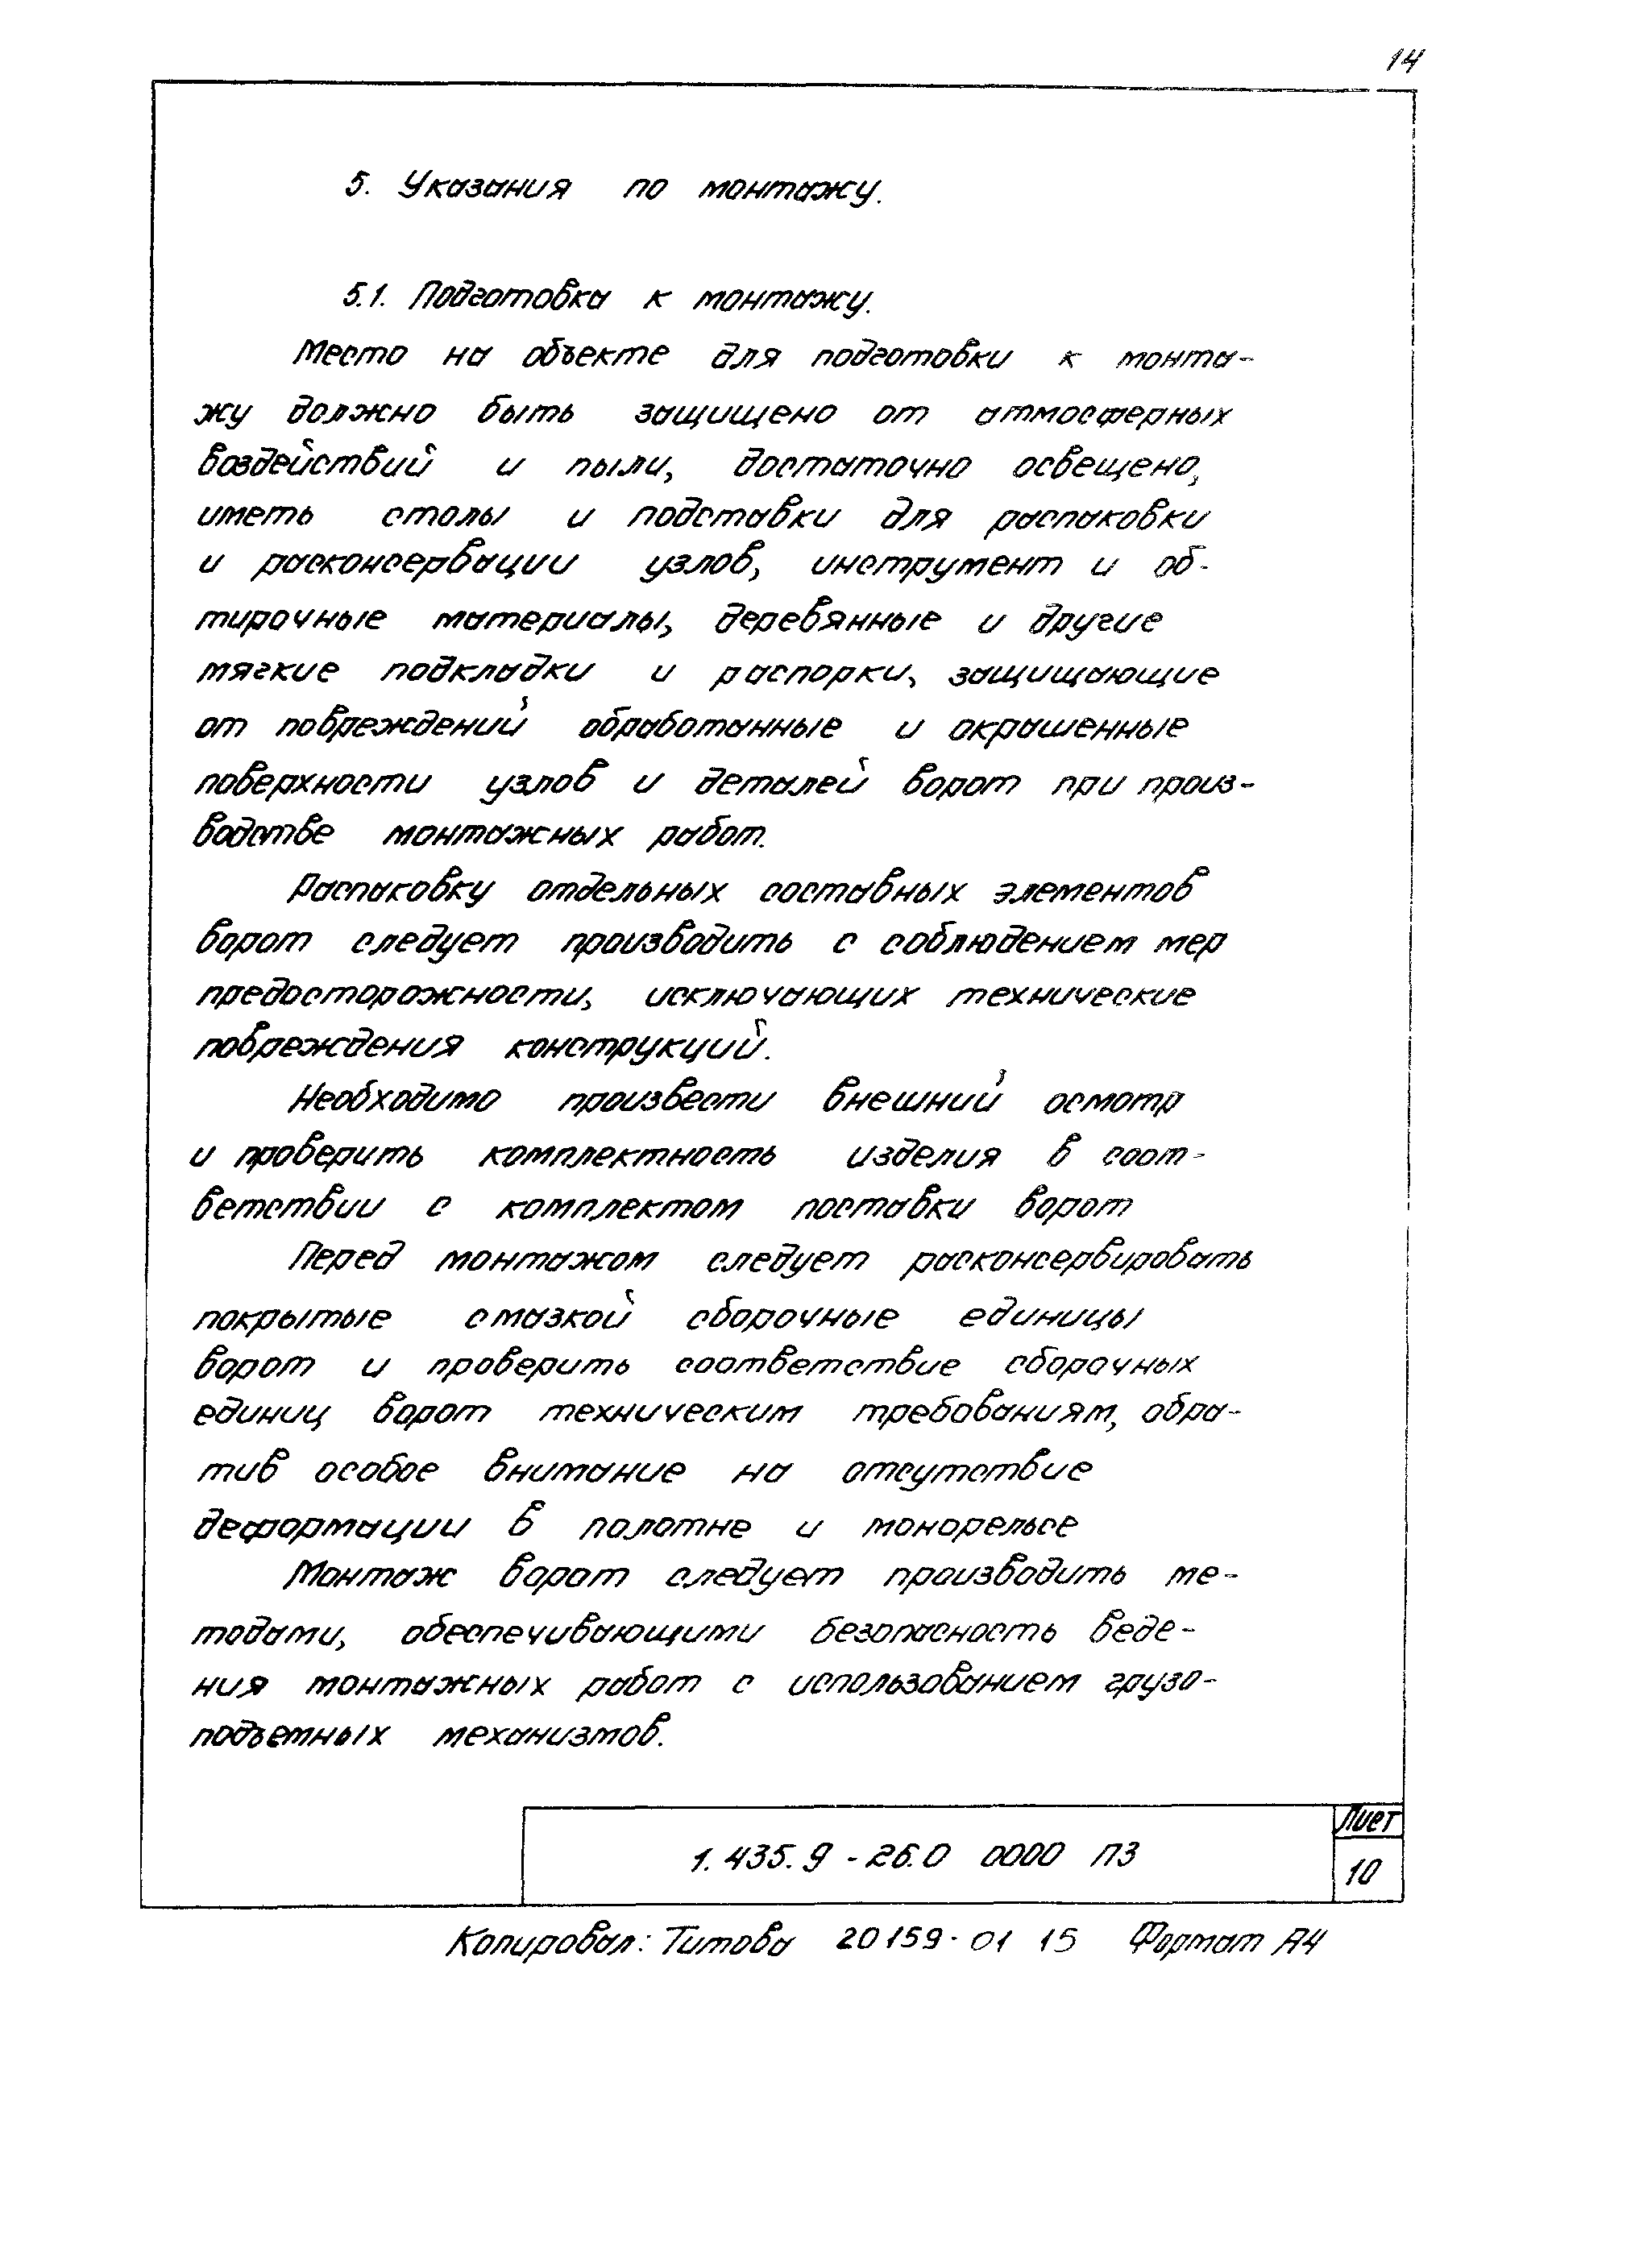 14
5. Указания по монтажу.
5.1. Подготовка к монтажу.
Место на объекте для подготовки к монта-
жу должно быть защищено от атмосферных
воздействий и пыли, достаточно освещено,
иметь столы и подставки для распаковки
и расконсервации узлов, инструмент и об-
тирочные материалы, деревянные и другие
мягкие подкладки и распорки, защищающие
от повреждений обработанные и окрашенные
поверхности узлов и деталей ворот при произ-
водстве монтажных работ.
Распаковку отдельных составных элементов
ворот следует производить с соблюдением мер
предосторожности, исключающих технические
повреждения конструкций.
Необходимо произвести внешний осмотр
и проверить комплектность изделия в соот-
ветствии с комплектом поставки ворот
Перед монтажом следует расконсервировать
покрытые смазкой сборочные единицы
ворот и проверить соответствие сборочных
единиц ворот техническим требованиям, обра-
тив особое внимание на отсутствие
деформации в полотне и монорельсе
Монтаж ворот следует производить ме-
тодами, обеспечивающими безопасность веде-
ния монтажных работ с использованием грузо-
подъемных механизмов.
1.435.9-26.0 0000 ПЗ
Лист
10
Копировал: Титова 20159-01 15 Формат А4